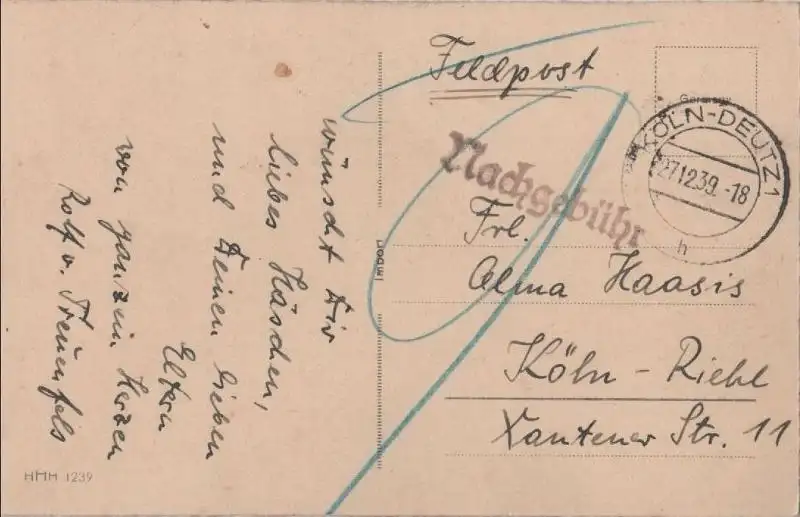 wünscht Dir
liebes Häschen,
und Deinen lieben
Eltern
von ganzem Herzen
Rolf v. Treuenfels
HHH 1239
Feldpost
Nachgebühr
KÖLN-DEUTZ 1
27.12.39.-18
h
Frl.
Alma Haasis
Köln - Riehl
Xantener Str. 11